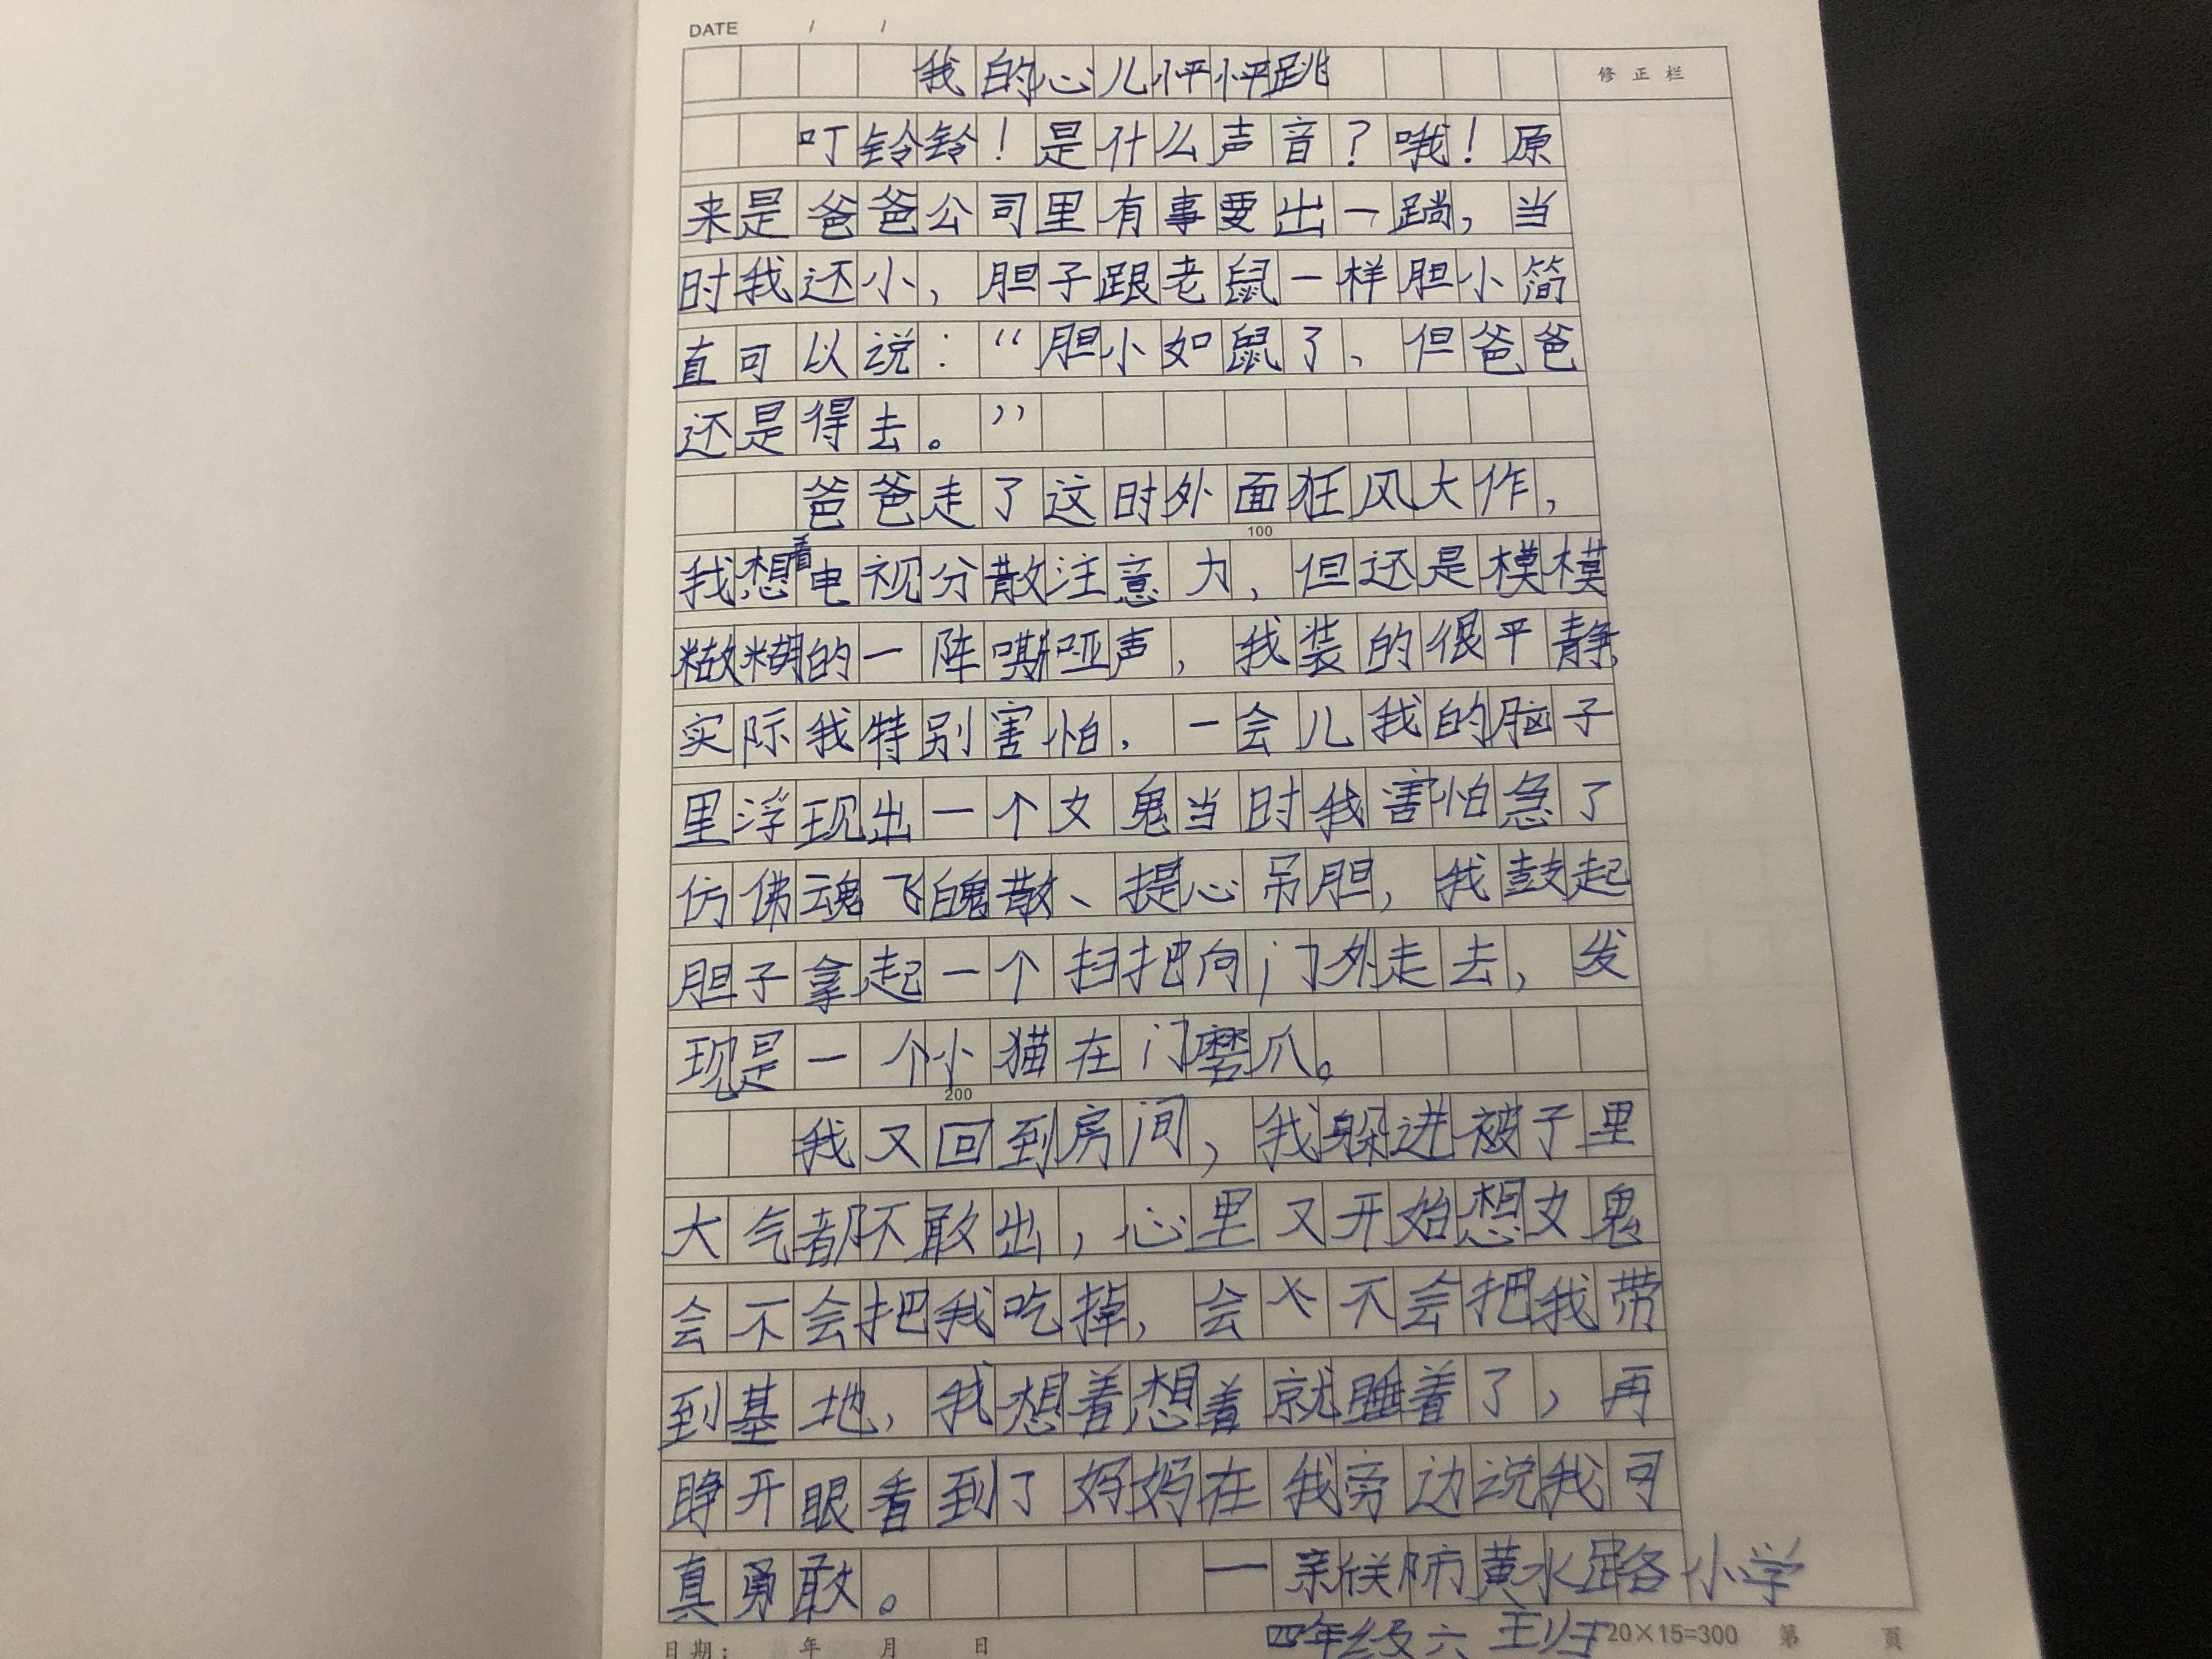 DATE / /
我的心儿怦怦跳
修正栏
叮铃铃！是什么声音？哦！原
来是爸爸公司里有事要出一趟，当
时我还小，胆子跟老鼠一样胆小简
直可以说：“胆小如鼠了、但爸爸
还是得去。”
爸爸走了这时外面狂风大作，
100
我想看电视分散注意力，但还是模模
糊糊的一阵嘶哑声，我装的很平静，
实际我特别害怕，一会儿我的脑子
里浮现出一个女鬼当时我害怕急了
仿佛魂飞魄散、提心吊胆，我鼓起
胆子拿起一个扫把向门外走去，发
现是一个小猫在门磨爪。
200
我又回到房间，我躲进被子里
大气都不敢出，心里又开始想女鬼
会不会把我吃掉，会不会把我带
到基地，我想着想着就睡着了，再
睁开眼看到了妈妈在我旁边说我可
真勇敢。 一 黄水路小学
四年级六
20×15=300 第 頁
日期： 年 月 日